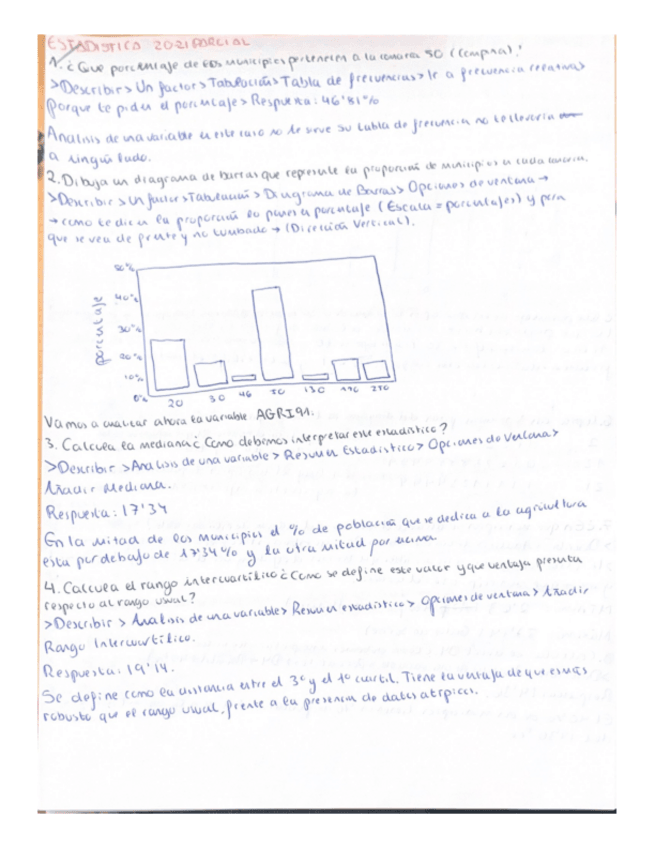 ESTADISTICA 2021 PARCIAL
1. ¿Que porcentaje de los municipios pertenecen a la comarca 50 (Campiña)?
>Describir>Un factor>Tabulación>Tabla de frecuencias>Ir a frecuencia relativa>
Porque te piden el porcentaje>Respuesta: 46'81%
Analisis de una variable en este caso no te sirve su tabla de frecuencia no te llevaria
a ningún lado.
2. Dibuja un diagrama de barras que represente la proporción de municipios en cada comarca.
>Describir>Un factor>Tabulación>Diagrama de Barras>Opciones de ventana→
→como te dicen la proporción lo pones en porcentaje (Escala=porcentajes) y para
que se vea de frente y no tumbado→(Dirección Vertical).
50%
40%
30%
20%
10%
0%
porcentaje
20 30 46 50 130 190 210
Vamos a analizar ahora la variable AGRI91.
3. Calcula la mediana ¿Cómo debemos interpretar este estadístico?
>Describir>Analisis de una variable>Resumen Estadistico>Opciones de Ventana>
Añadir Mediana.
Respuesta: 17'34
En la mitad de los municipios el % de población que se dedica a la agricultura
esta por debajo de 17'34% y la otra mitad por encima
4. Calcula el rango intercuartílico ¿Como se define este valor y que ventaja presenta
respecto al rango usual?
>Describir>Analisis de una variable>Resumen estadístico>Opciones de ventana>Añadir
Rango Intercuartílico.
Respuesta: 19'14.
Se define como la distancia entre el 3º y el 1º cuartil. Tiene la ventaja de que es más
robusto que el rango usual, frente a la presencia de datos atípicos.